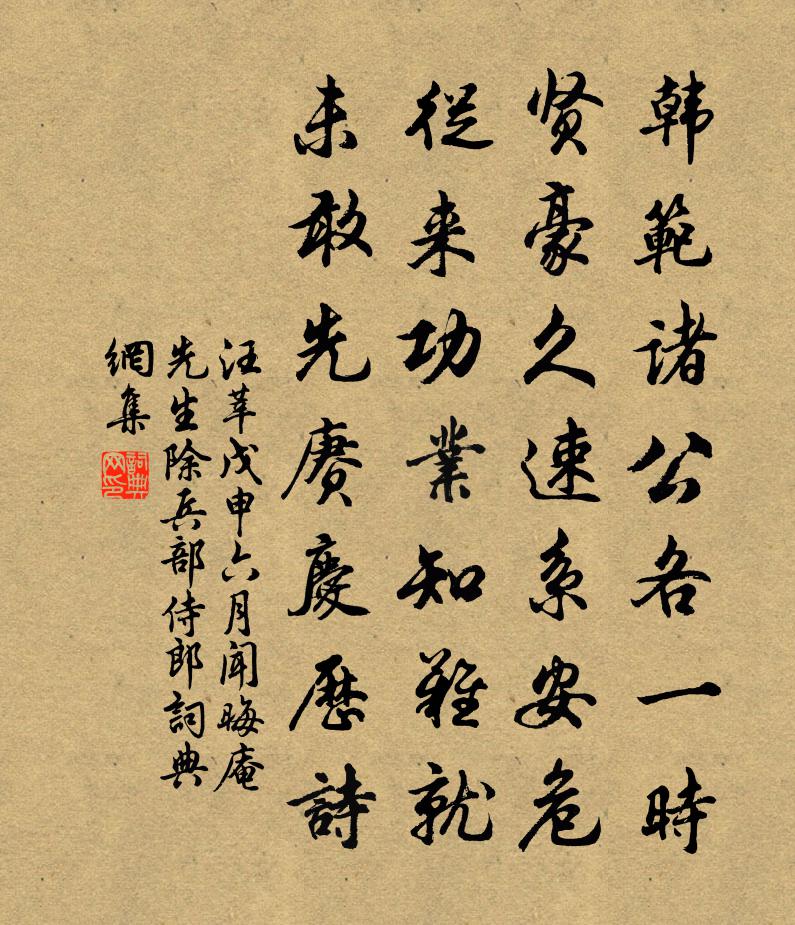 韩範诸公各一時
贤豪久速系安危
從来功業知難就
未敢先赓慶歷詩
汪莘戊申六月闻晦庵
先生除兵部侍郎詞典
網集
詞典网印